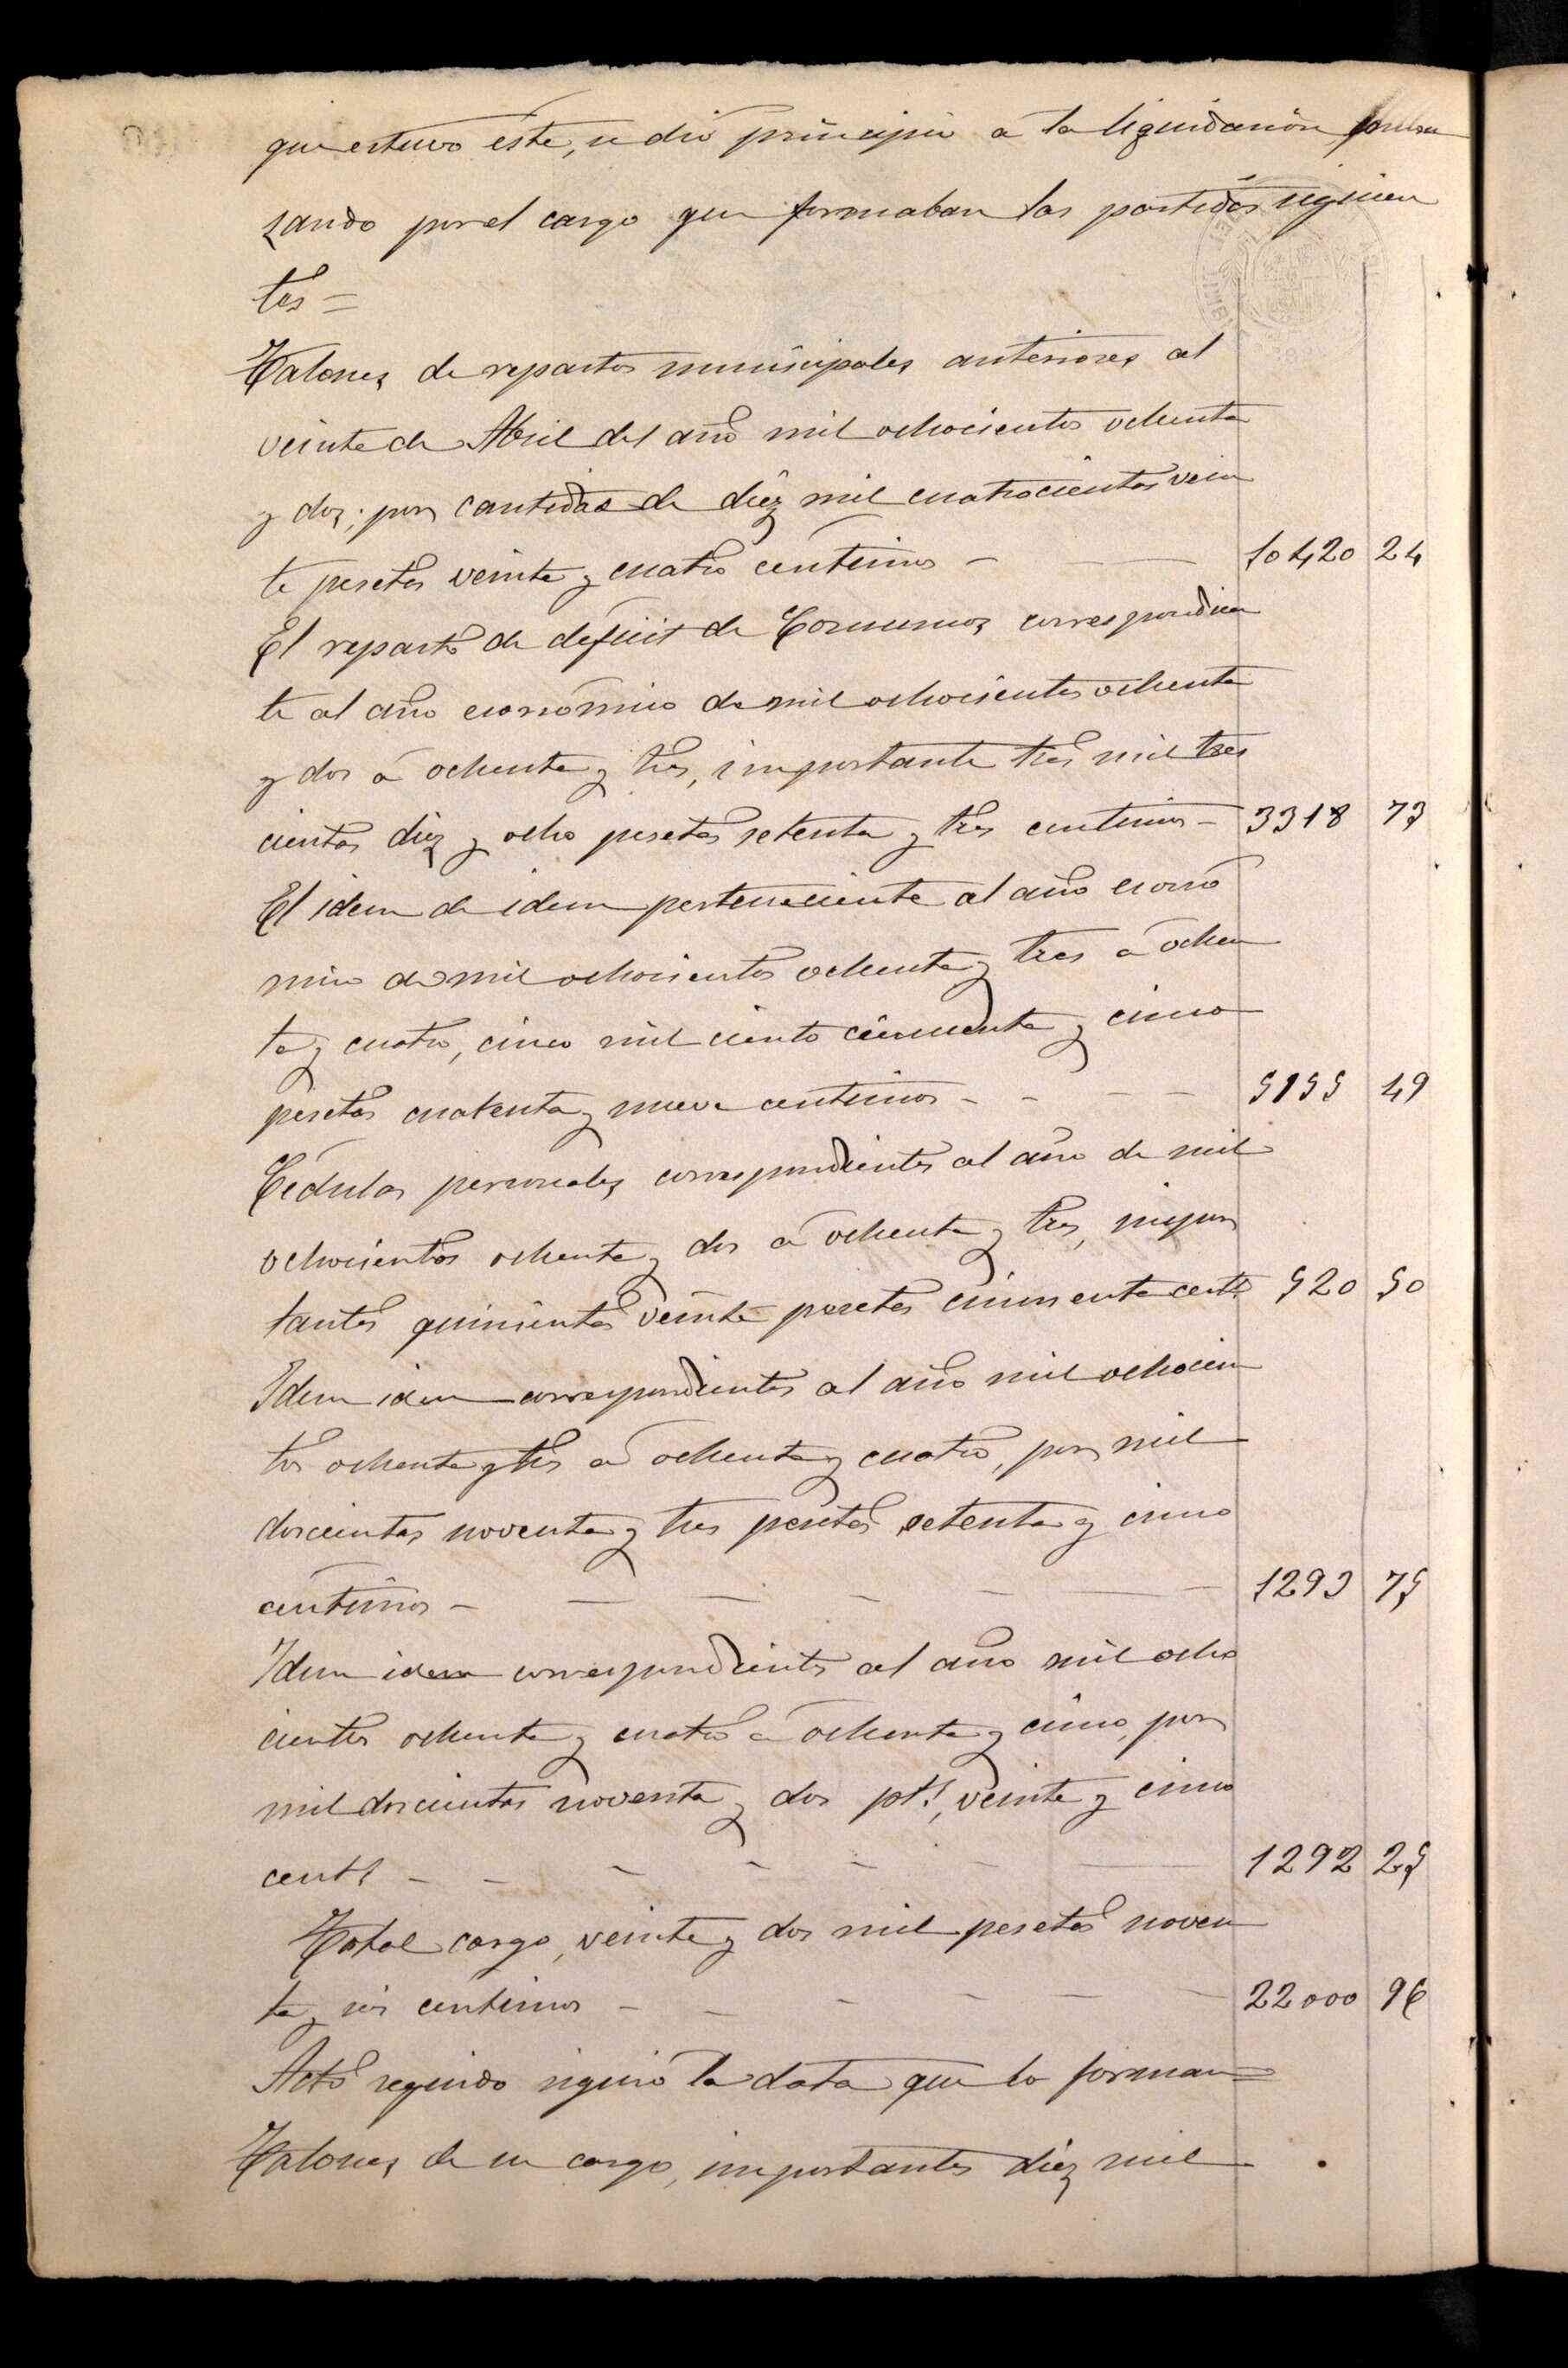 que estuvo éste, se dió principio á la liquidación
zando por el cargo que formaban las partidas siguien
tes =
Talones de repartos municipales anteriores al
veinte de Abril del año mil ochocientos ochenta
y dos, por cantidad de diez mil cuatrocientas vein
te pesetas veinte y cuatro centimos - 10420 24
El reparto de deficit de Consumos correspondien
te al año económico de mil ochocientos ochenta
y dos á ochenta y tres, importante tres mil tres
cientas diez y ocho pesetas setenta y tres centimos - 3318 73
El idem de idem perteneciente al año econó
mico de mil ochocientos ochenta y tres á ochen
ta y cuatro, cinco mil ciento cincuenta y cinco
pesetas cuarenta y nueve centimos - - - - 5155 49
Cédulas personales correspondientes al año de mil
ochocientos ochenta y dos á ochenta y tres, impor
tantes quinientas veinte pesetas cincuenta cents 520 50
Idem idem correspondientes al año mil ochocien
tos ochenta y tres á ochenta y cuatro, por mil
doscientas noventa y tres pesetas setenta y cinco
centimos - - - - - - 1293 75
Idem idem correspondientes al año mil ocho
cientos ochenta y cuatro á ochenta y cinco, por
mil doscientas noventa y dos pts, veinte y cinco
cents - - - - - - - 1292 25
Total cargo, veinte y dos mil pesetas noven
ta y seis centimos - - - - - - 22000 96
Acto seguido siguió la data que la forman =
Talones de su cargo, importantes diez mil